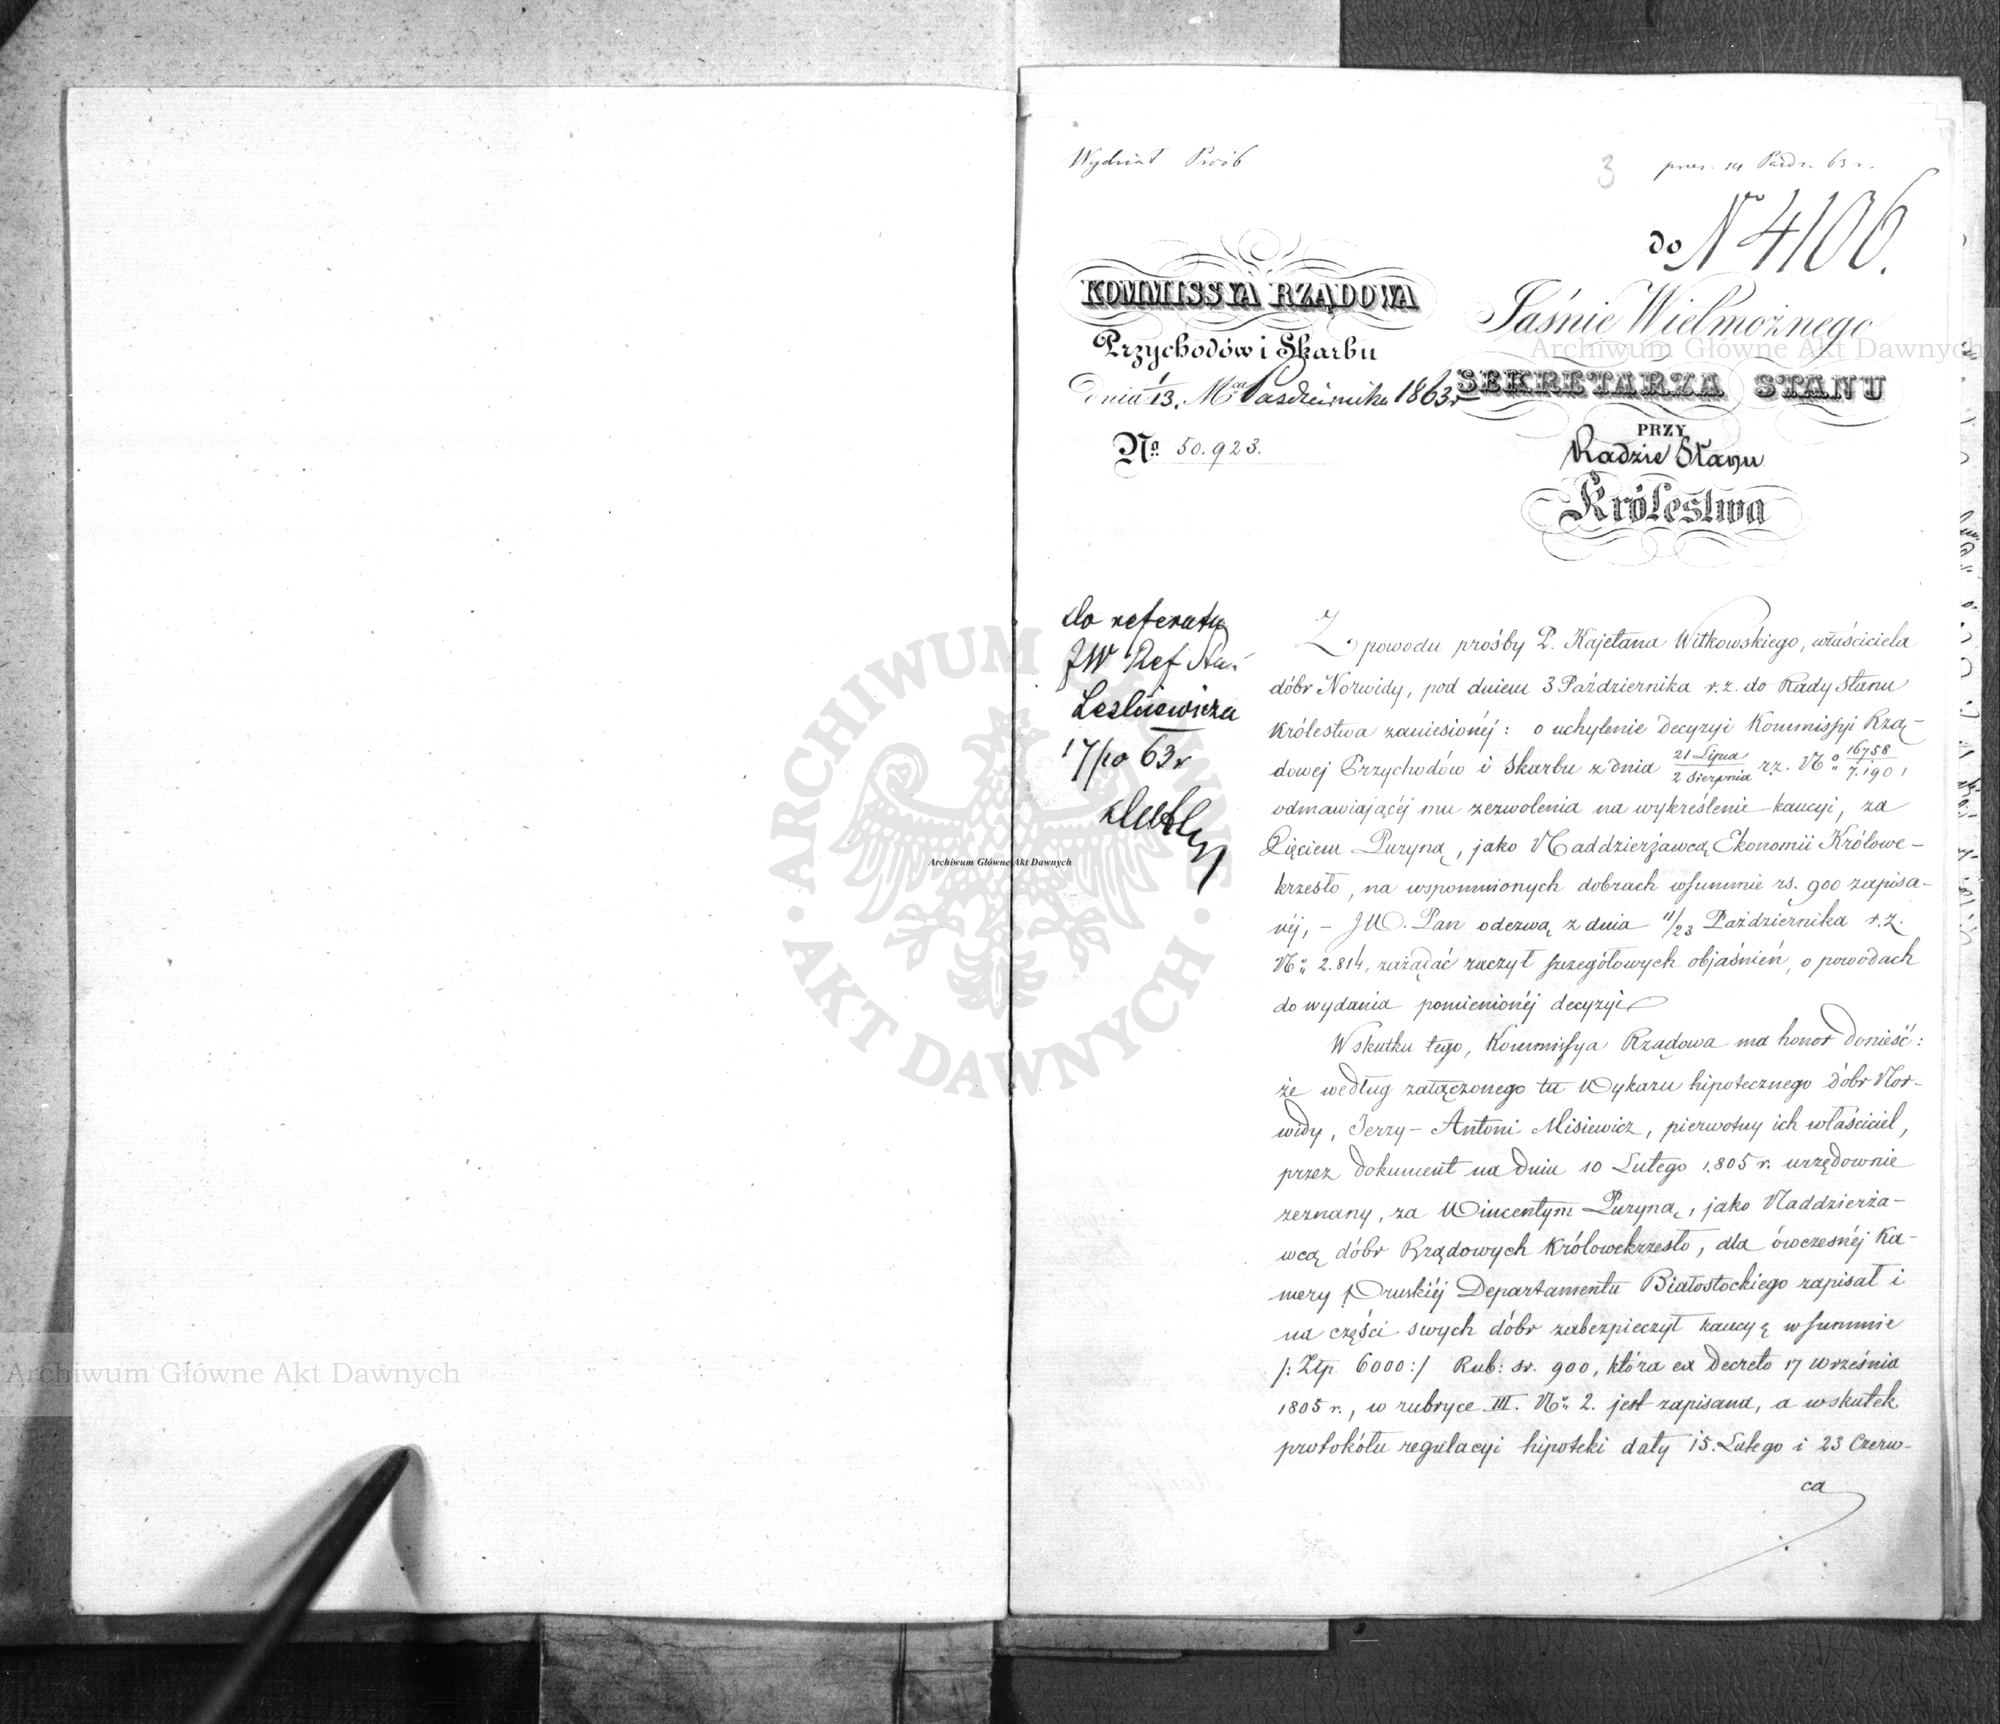 Wydział Próśb
3
prez. 14 Paźdz. 63 r.
do No 4106.
KOMMISSYA RZĄDOWA
Przychodów i Skarbu
dnia 1/13. Mca Października 1863 r
No. 50.923.
Jaśnie Wielmożnego
SEKRETARZA STANU
PRZY
Radzie Stanu
Królestwa
do referatu
JW Ref Sta
17/10 63 r
Z powodu prośby P. Kajetana Witkowskiego, właściciela
dóbr Norwidy, pod dniem 3 Października r.z. do Rady Stanu
Królestwa zaniesionéj: o uchylenie decyzyi Kommissyi Rzą-
dowej Przychodów i Skarbu z dnia 21 Lipca / 2 Sierpnia r.z. No 16758 / 7.190
odmawiającéj mu zezwolenia na wykreślenie kaucyi, za
Xięciem Puzyną, jako Naddzierżawcą Ekonomii Królowe-
krzesło, na wspomnionych dobrach w summie rs. 900 zapisa-
néj, – JW. Pan odezwą z dnia 11/23 Października r.z.
No 2.814, zażądać raczył szczegółowych objaśnień, o powodach
do wydania pomienionéj decyzyi
W skutku tego, Kommissya Rządowa ma honor donieść:
że według załączonego tu Wykazu hipotecznego dóbr Nor-
widy, Jerzy – Antoni Misiewicz, pierwotny ich właściciel,
przez dokument na dniu 10 Lutego 1805 r. urzędownie
zeznany, za Wincentym Puzyną, jako Naddzierża-
wcą dóbr Rządowych Królowekrzesło, dla ówczesnéj Ka-
mery Pruskiéj Departamentu Białostockiego zapisał i
na części swych dóbr zabezpieczył kaucyę w summie
/: Złp. 6000 :/ Rub: sr. 900, która ex Decreto 17 Września
1805 r., w rubryce III. No 2. jest zapisana, a wskutek
protokółu regulacyi hipoteki daty 15. Lutego i 23 Czerw-
ca
ARCHIWUM GŁÓWNE
AKT DAWNYCH
Archiwum Główne Akt Dawnych
Archiwum Główne Akt Dawnych
Archiwum Główne Akt Dawnych